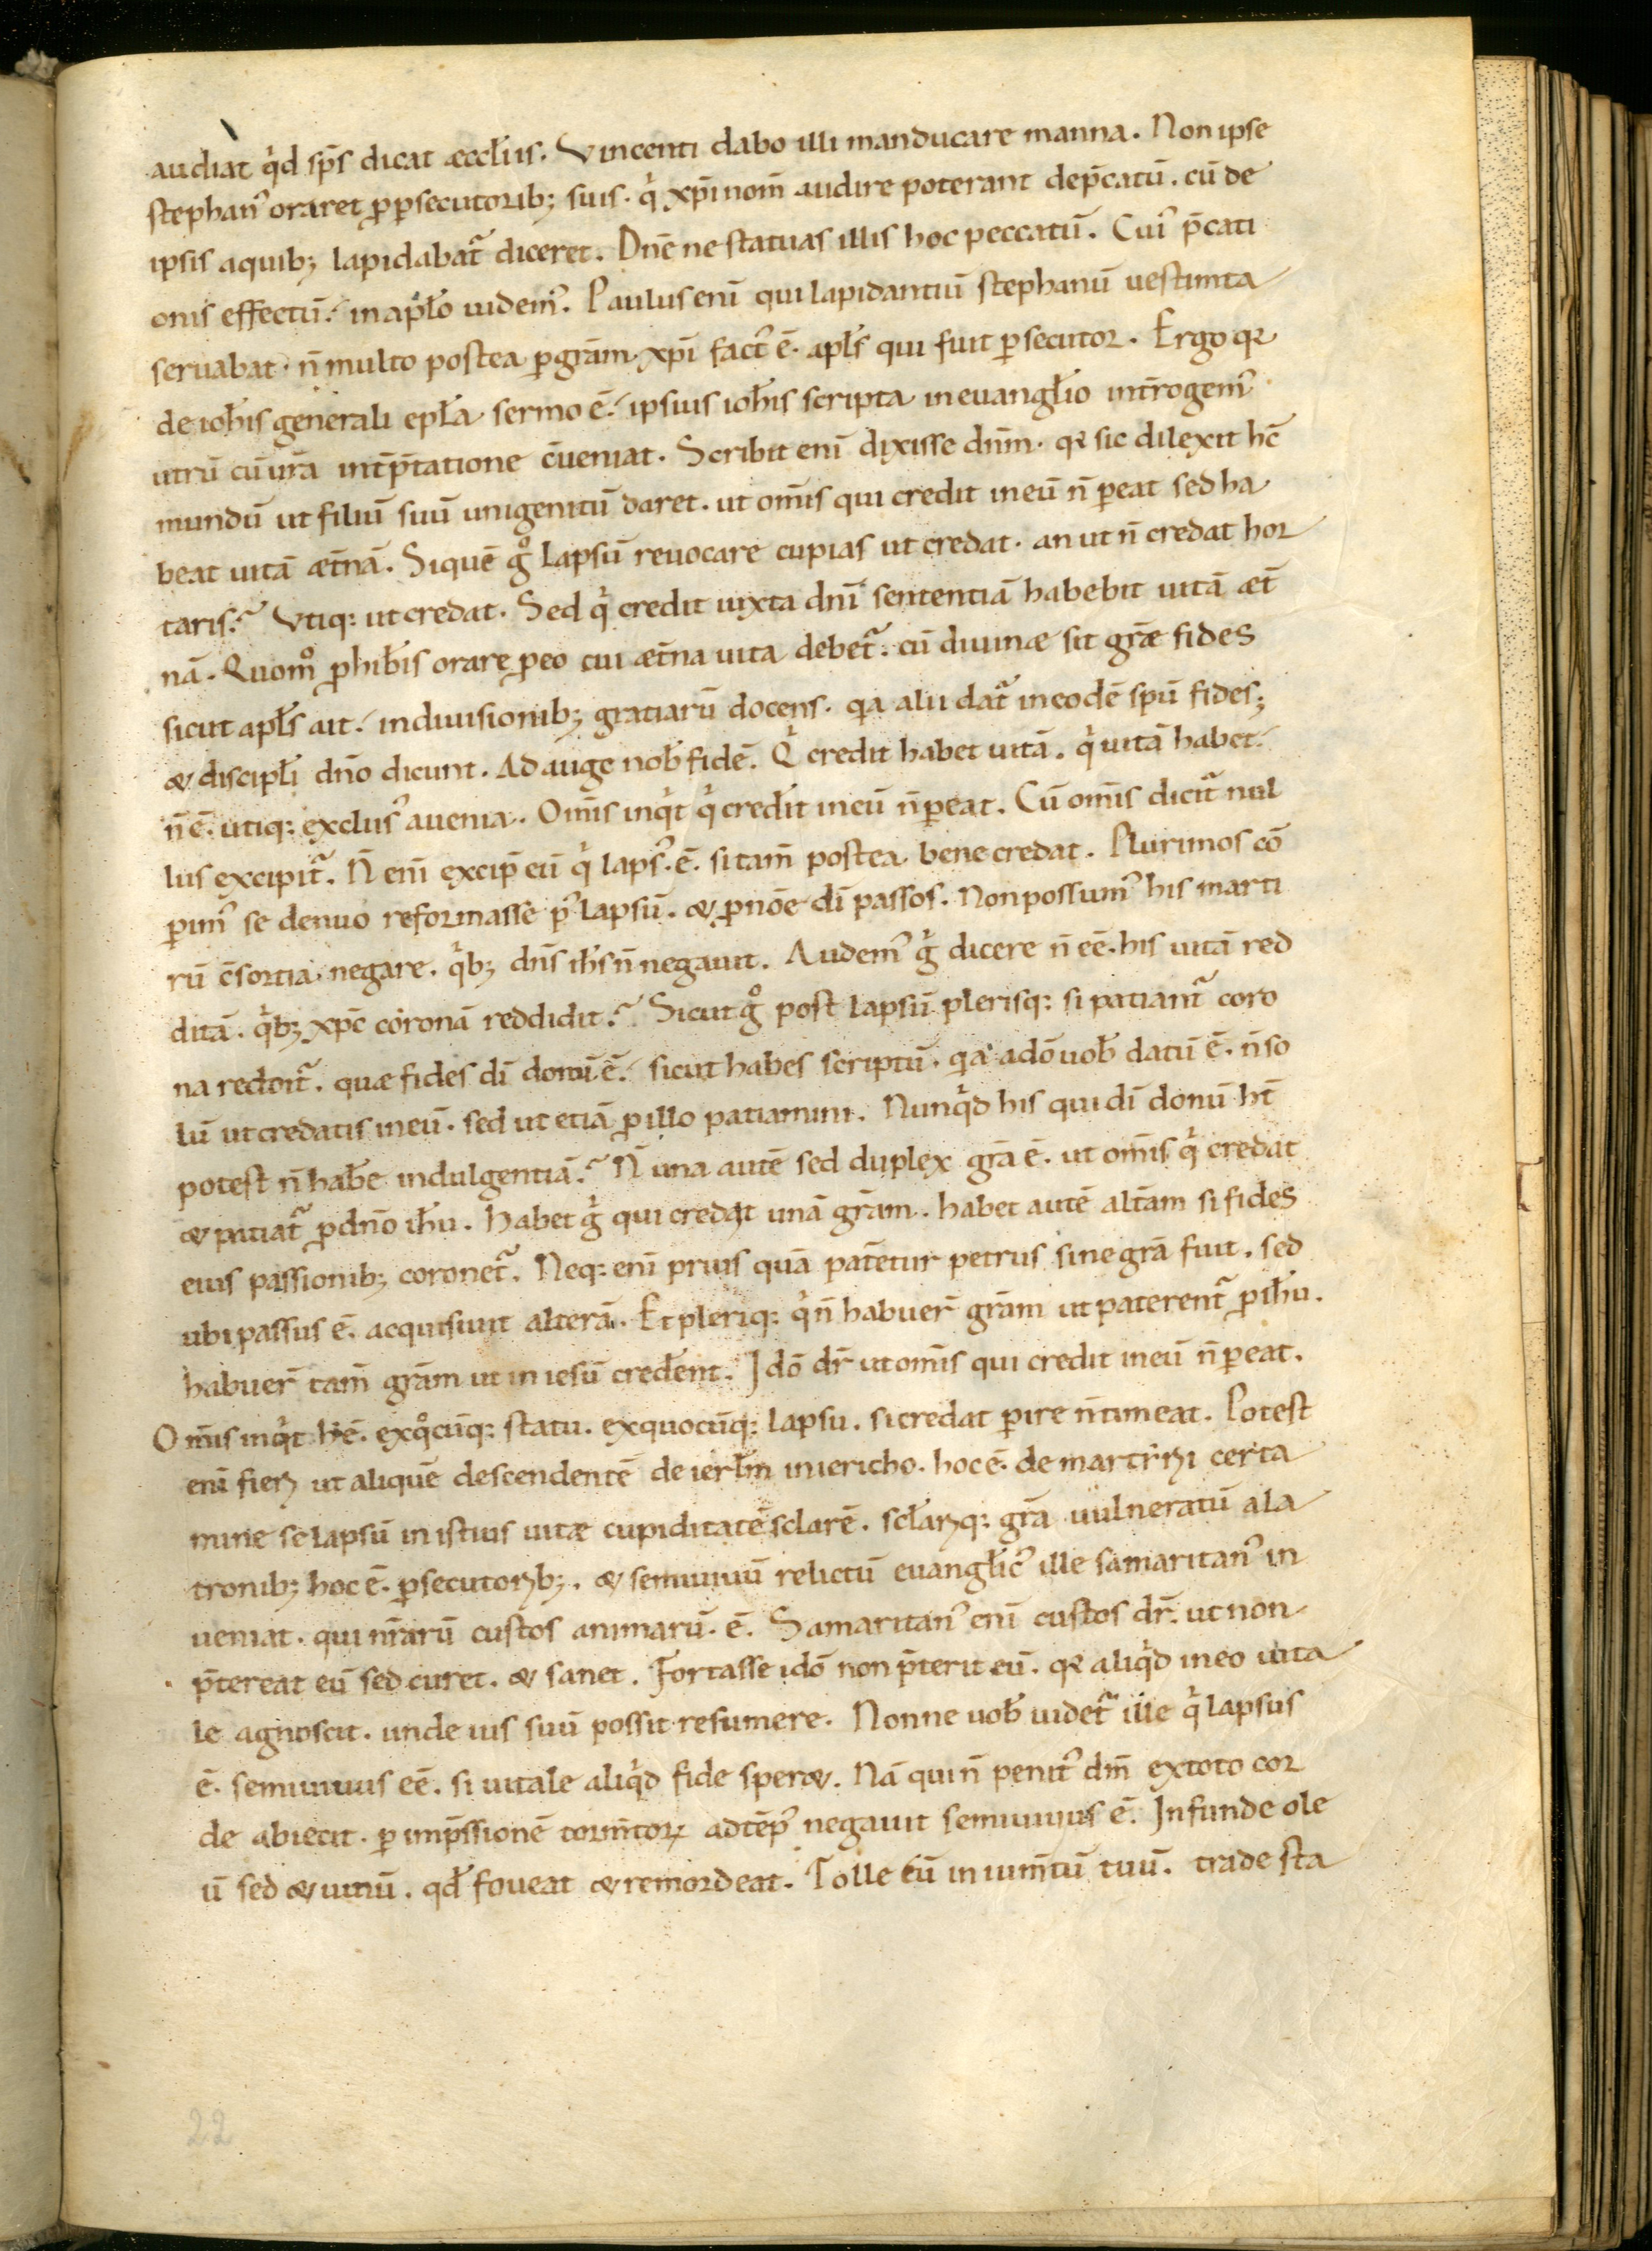 audiat q̇d sp̄s dicat æccl̄iis. Vincenti dabo illi manducare manna. Non ipse
stephan᾽ oraret p̱p̱secutorib; suis. q̇ xp̄i nom̄ audire poterant dep̄catū. cū de
ipsis aquib; lapidabat᷑ diceret. Dn̄e ne statuas illis hoc peccatū. Cui᾽ p̄cati
onis effectū. in ap̄lo uidem᾽. Paulus enī qui lapidantiū stephanū uestim̄ta
seruabat. n̄ multo postea p̱ grām xp̄i fact᾽ ē. apl̄s qui fuit p̱secutor. Ergo qr̄
de ioh̄is generali epl̄a sermo ē. ipsius ioh̄is scripta in euangl̄io int̄rogem᾽
utrū cū ur̄a int̄p̄tatione c̄ueniat. Scribit enī dixisse dn̄m. qr̄ sic dilexit hc̄
mundū ut filiū suū unigenitū daret. ut om̄is qui credit in eū n̄ p̱eat sed ha
beat uitā æt̄nā. Si quē g̊ lapsū reuocare cupias ut credat. an ut n̄ credat hor
taris? Vtiq; ut credat. Sed q̇ credit iuxta dn̄i sententiā habebit uitā æt̄
nā. Quom̊ p̱hib̄is orare p̱ eo cui æt̄na uita debet᷑. cū diuinæ sit gr̄æ fides
sicut apl̄s ait. in diuisionib; gratiarū docens. qa alii dat᷑ in eodē sp̄u fides;
& discipl̄i dn̄o dicunt. Ad auge nob̄ fidē. Q̇ credit habet uitā. q̇ uitā habet.
n̄ ē. utiq; exclus᾽ auenia. Om̄is inq̇t q̇ credit in eū n̄ p̱eat. Cū om̄is dicit᷑ nul
lus excipit᷑. N̄ enī excip̄ eū q̇ laps᾽ ē. si tam̄ postea bene credat. Plurimos cō
p̱im᾽ se denuo reformasse p᾽ lapsū. & p̱ nōe dī passos. Non possum᾽ his marti
rū c̄sortia negare. q̇b; dn̄s ih̄s n̄ negauit. Audem᾽ ġ̣ dicere n̄ eē. his uitā red
ditā. q̇b; xp̄c coronā reddidit? Sicut g̊ post lapsū plerisq; si patiant᷑ coro
na reddit᷑. quæ fides dī donū ē. sicut habes scriptū. qa adō uob̄ datū ē. n̄ so
lū ut credatis in eū. sed ut etiā p̱ illo patiamini. Nunq̇d his qui dī donū ht̄
potest n̄ hab̄e indulgentiā? N̄ una autē sed duplex grā ē. ut om̄is q̇ credat
& patiat᷑ p̱ dn̄o ih̄u. Habet ġ̣ qui credat unā grām. habet autē alt̄am si fides
eius passionib; coronet᷑. Neq; enī prius quā pat̄etur petrus sine grā fuit. sed
ubi passus ē. acquisiuit alterā. Et pleriq; q̇ n̄ habuer̄ grām ut paterent᷑ p̱ ih̄u.
habuer̄ tam̄ grām ut in iesū cred̄ent. Idō dr̄ ut om̄is qui credit in eū n̄ p̱eat.
Om̄is inq̇t h ē. exq̊cūq; statu. exquocūq; lapsu. si credat p̱ire n̄ timeat. Potest
enī fieri ut aliquē descendentē de ierl̄m in iericho. hoc ē. de martyrii certa
mine se lapsū in istius uitæ cupiditatē sclarē. scl̄ariq; grā uulneratū ala
tronib; hoc ē. p̱secutorib;. & semiuiuū relictū euangl̄ic᾽ ille samaritan᾽ in
ueniat. qui nr̄arū custos animarū ē. Samaritan᾽ enī custos dr̄. ut non
p̄tereat eū sed curet. & sanet. Fortasse idō non p̄terit eū. qr̄ aliq̇d in eo uita
le agnoscit. unde uis suū possit resumere. Nonne uob̄ uidet᷑ ille q̇ lapsus
ē. semiuiuus eē. si uitale aliq̇d fide sper&. Nā qui n̄ penit᾽ dm̄ extoto cor
de abiecit. p̱ imp̄ssionē torm̄toꝝ adtēp᾽ negauit semiuiuus ē. Infunde ole
ū sed & uinū. qd̄ foueat & remordeat. Tolle eū in ium̄tū tuū. trade sta
22